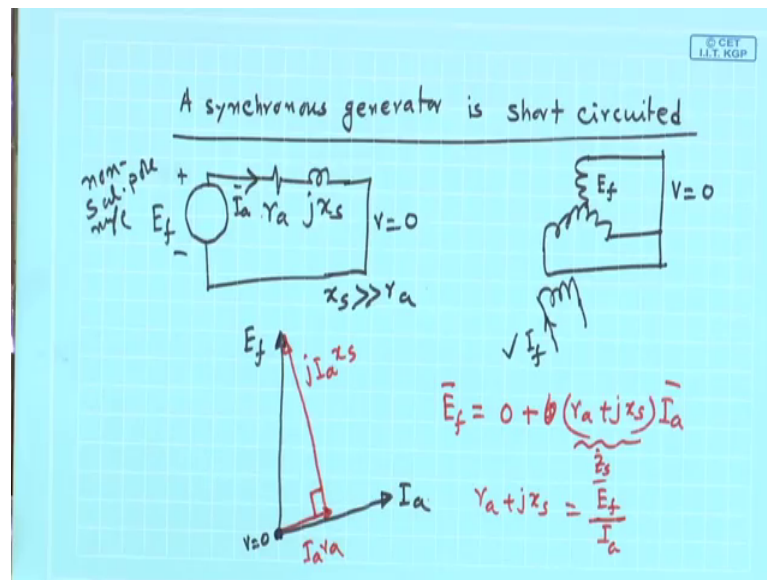 © CET
I.I.T. KGP
A synchronous generator is short circuited
non-
sal. pole
m/c
+
E_f
−
Ī_a r_a jx_s
V=0
x_s >> r_a
E_f
V=0
√ I_f
E_f
jI_a x_s
V=0
I_a r_a
I_a
Ē_f = 0 + (r_a + jx_s) Ī_a
z_s
r_a + jx_s = Ē_f / I_a